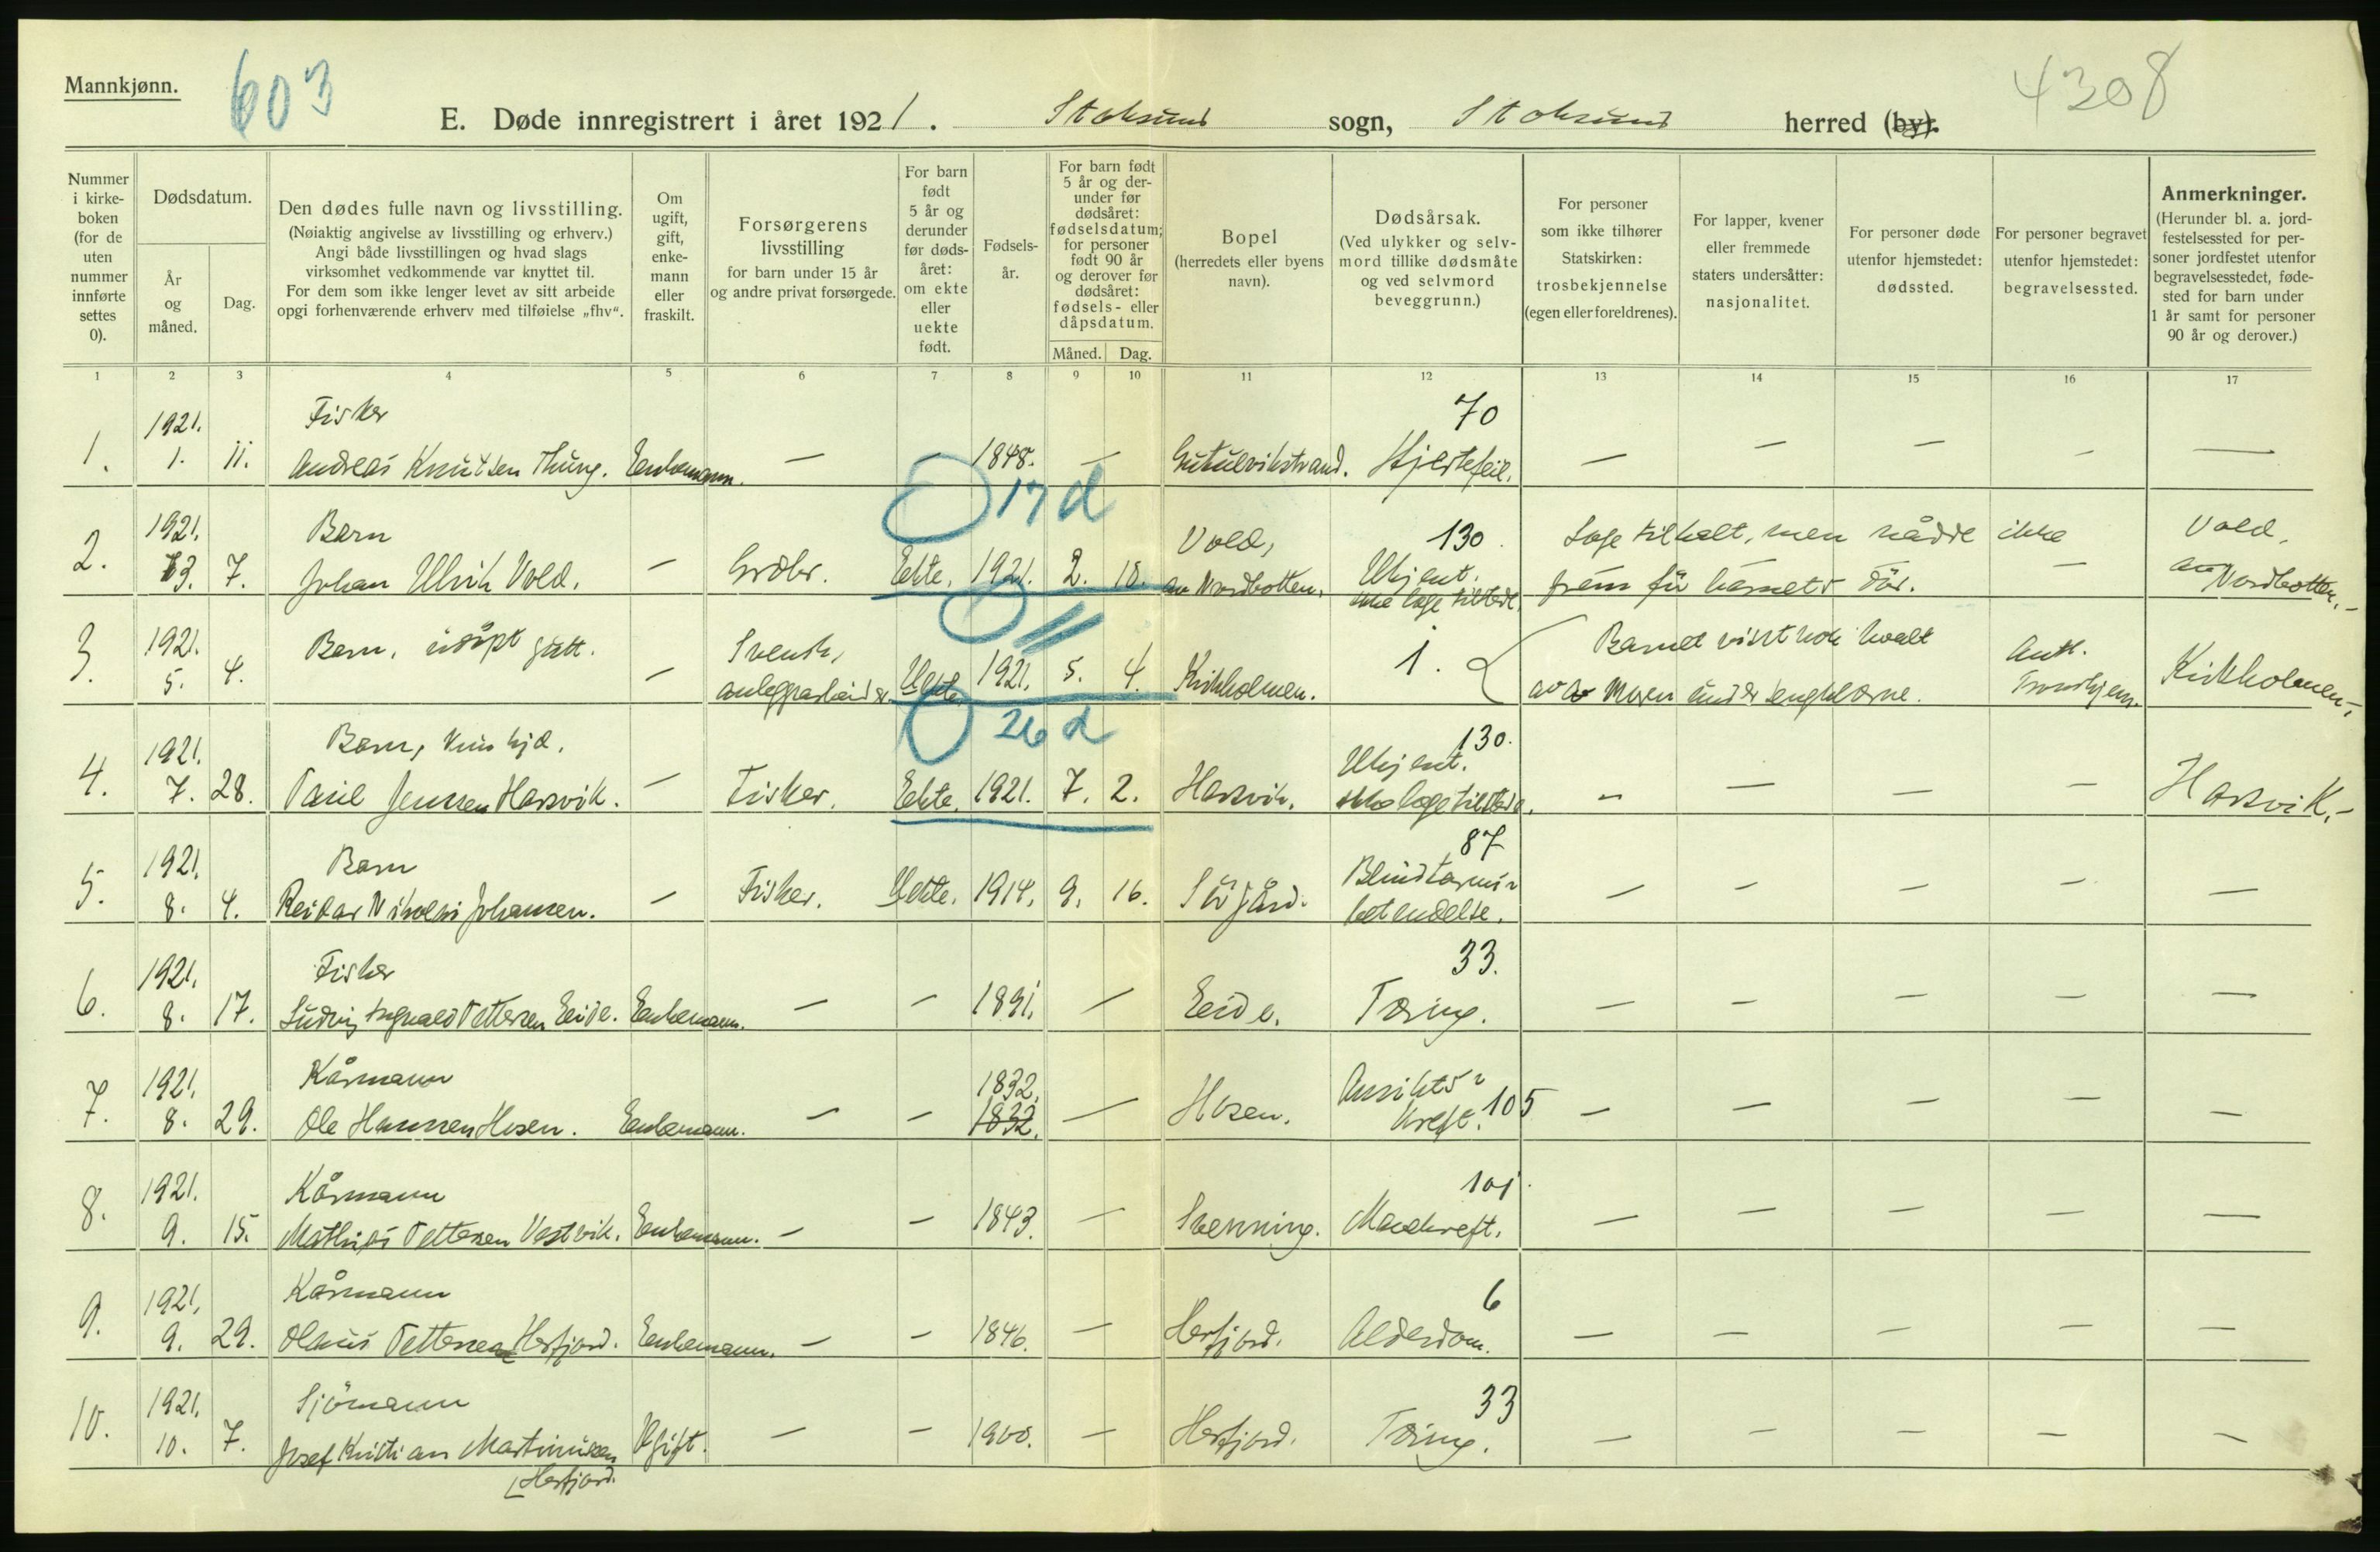 Mannkjønn.
603
4308
E. Døde innregistrert i året 1921. Stoksund sogn, Stoksund herred (by).
Nummer i kirke-boken (for de uten nummer innførte settes 0).
Dødsdatum.
År og måned.
Dag.
Den dødes fulle navn og livsstilling.
(Nøiaktig angivelse av livsstilling og erhverv.)
Angi både livsstillingen og hvad slags
virksomhet vedkommende var knyttet til.
For dem som ikke lenger levet av sitt arbeide
opgi forhenværende erhverv med tilføielse „fhv“.
Om ugift, gift, enke-mann eller fraskilt.
Forsørgerens livsstilling
for barn under 15 år
og andre privat forsørgede.
For barn født 5 år og derunder før døds-året: om ekte eller uekte født.
Fødsels-år.
For barn født 5 år og der-under før dødsåret: fødselsdatum; for personer født 90 år og derover før dødsåret: fødsels- eller dåpsdatum.
Måned.
Dag.
Bopel
(herredets eller byens navn).
Dødsårsak.
(Ved ulykker og selv-mord tillike dødsmåte og ved selvmord beveggrunn.)
For personer som ikke tilhører Statskirken: trosbekjennelse (egen eller foreldrenes).
For lapper, kvener eller fremmede staters undersåtter: nasjonalitet.
For personer døde utenfor hjemstedet: dødssted.
For personer begravet utenfor hjemstedet: begravelsessted.
Anmerkninger.
(Herunder bl. a. jord-festelsessted for per-soner jordfestet utenfor begravelsesstedet, føde-sted for barn under 1 år samt for personer 90 år og derover.)
1 2 3 4 5 6 7 8 9 10 11 12 13 14 15 16 17
1921. Fisker 70
1. 1. 11. Andreas Knutsen Thung. Enkemann. — — 1848. — Hjertefeil. — — — — —
17 d
1921. Barn Vold, 130. Læge tilkalt, men nådde ikke Vold,
2. 3. 7. Johan Ulrik Vold. — Grdbr. Ekte. 1921. 2. 18. av Nordbotten. Ukjent. ikke læge tilstede. frem før barnets død. — av Nordbotten.-
11
1921. Barn, udöpt gutt. Svensk, Barnet visst nok kvalt
3. 5. 4. — anleggsarbeider. Uekte. 1921. 5. 4. Kirkholmen. 1. av moren under sengklærne. Trondhjem. Kirkholmen.-
26 d
1921. Barn, 130.
4. 7. 28. Paul Jensen Harsvik. — Fisker. Ekte. 1921. 7. 2. Harsvik. Ukjent. ikke læge tilstede. — — — — Harsvik.-
1921. Barn 87
5. 8. 4. Reidar Nikolai Johansen. — Fisker. Uekte. 1914. 9. 16. Sörgård. Blindtarms-betendelse. — — — — —
1921. Fisker 33.
6. 8. 17. Ludvig Pettersen Eide. Enkemann. — — 1891. — Eide. Tæring. — — — — —
1921. Kårmann 1832.
7. 8. 29. Ole Hansen Hosen. Enkemann. — — 1832. — Hosen. Ansikts-kreft. 105 — — — — —
1921. Kårmann 101.
8. 9. 15. Mathias Pettersen Vestvik. Enkemann. — — 1843. — Svenning. Mavekreft. — — — — —
1921. Kårmann 6
9. 9. 29. Olaus Pettersen Herfjord. Enkemann. — — 1846. — Herfjord. Alderdom. — — — — —
1921. Sjömann 33
10. 10. 7. Josef Kristian Martinusen Ugift. — — 1900. — Herfjord. Tæring. — — — — —
Herfjord.